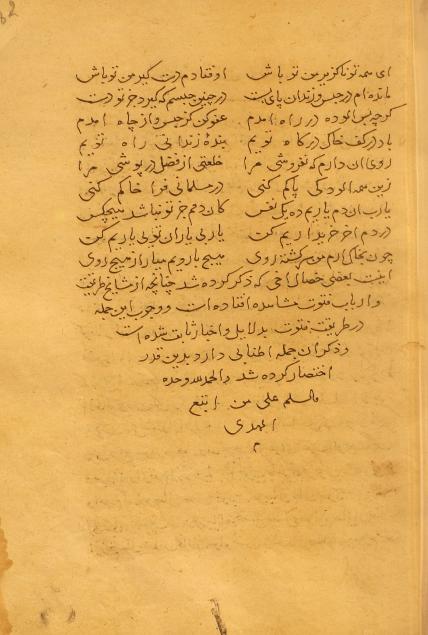 ای همه تو ناگزیر من تو باش اوفتادم دست گیر من تو باش
مانده‌ام در حبس و زندان پای بست در چنین حبسم که گیرد جز تو دست
گرچه بس آلوده در راه آمدم عفو کن کز حبس و از چاه آمدم
باد در کف خاک درگاه تویم بندهٔ زندانی راه تویم
روی آن دارم که نفروشی مرا خلعتی از فضل درپوشی مرا
زین همه آلودگی پاکم کنی در مسلمانی فرا خاکم کنی
یارب آن دم یاریم ده یک نفس کان دم جز تو نباشد هیچکس
در دم آخر خریداریم کن یار بی یاران تویی یاریم کن
چون بخاک آرم من سرگشته روی هیچ با رویم میار از هیچ روی
اینست بعضی خصال اخی که ذکر کرده شد چنانچه از مشایخ طریقت
و ارباب فتوت مشاهده افتاده است و وجوب این جمله
در طریقت فتوت بدلایل و اخبار ثابت شده است
و ذکر آن جمله اطنابی دارد بدین قدر
اختصار کرده شد والحمدلله وحده
والسلم علی من اتبع
الهدی
م